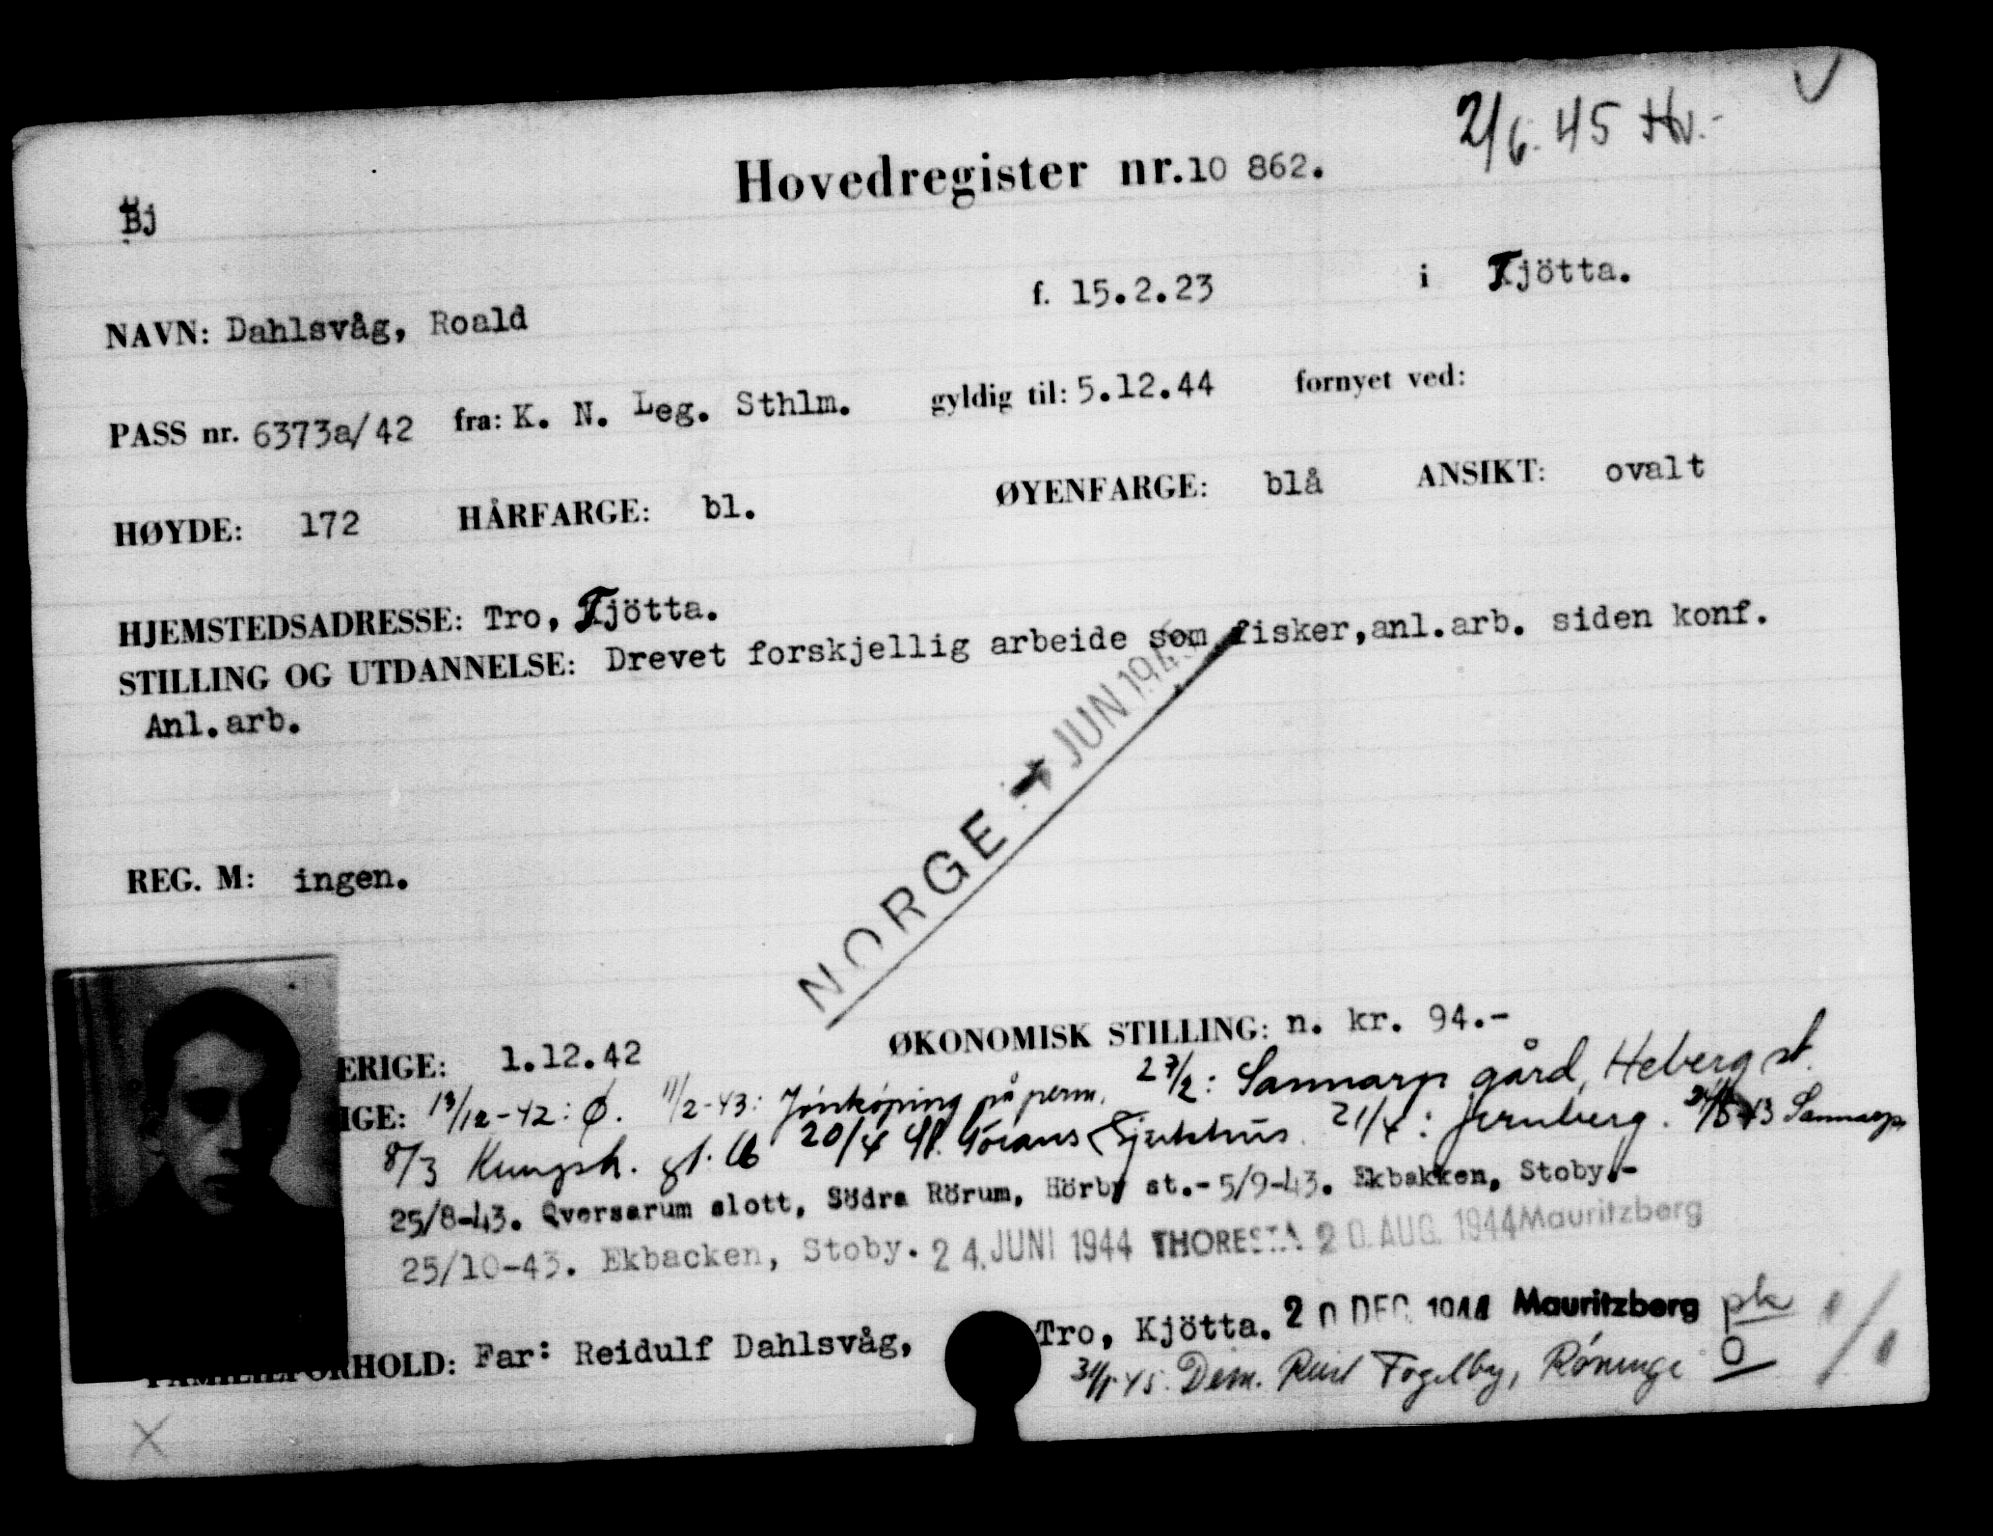 2/6. 45 Hv.-
Hovedregister nr. 10 862.
Bj
NAVN: Dahlsvåg, Roald f. 15.2.23 i Tjötta.
PASS nr. 6373a/42 fra: K. N. Leg. Sthlm. gyldig til: 5.12.44 fornyet ved:
HØYDE: 172 HÅRFARGE: bl. ØYENFARGE: blå ANSIKT: ovalt
HJEMSTEDSADRESSE: Tro, Tjötta.
STILLING OG UTDANNELSE: Drevet forskjellig arbeide som fisker,anl.arb. siden konf.
Anl.arb.
NORGE JUN 194
REG. M: ingen.
ERIGE: 1.12.42 ØKONOMISK STILLING: n. kr. 94.-
IGE: 13/12-42: Ø. 11/2-43: Jönköping på perm. 27/2: Sannarp gård, Heberg st.
8/3 Kungsh. 20/4 Görans Sjukhus. 21/4: Jernberg. Sannarp
25/8-43. Qversarum slott, Södra Rörum, Hörby st.- 5/9-43. Ekbakken, Stoby.-
25/10-43. Ekbacken, Stoby. 24. JUNI 1944 THORESTA 20. AUG. 1944 Mauritzberg
FAMILIEFORHOLD: Far: Reidulf Dahlsvåg, Tro, Kjötta. 20 DEC 1944 Mauritzberg pk
45. Dim. Fogelby, Rönninge O
X